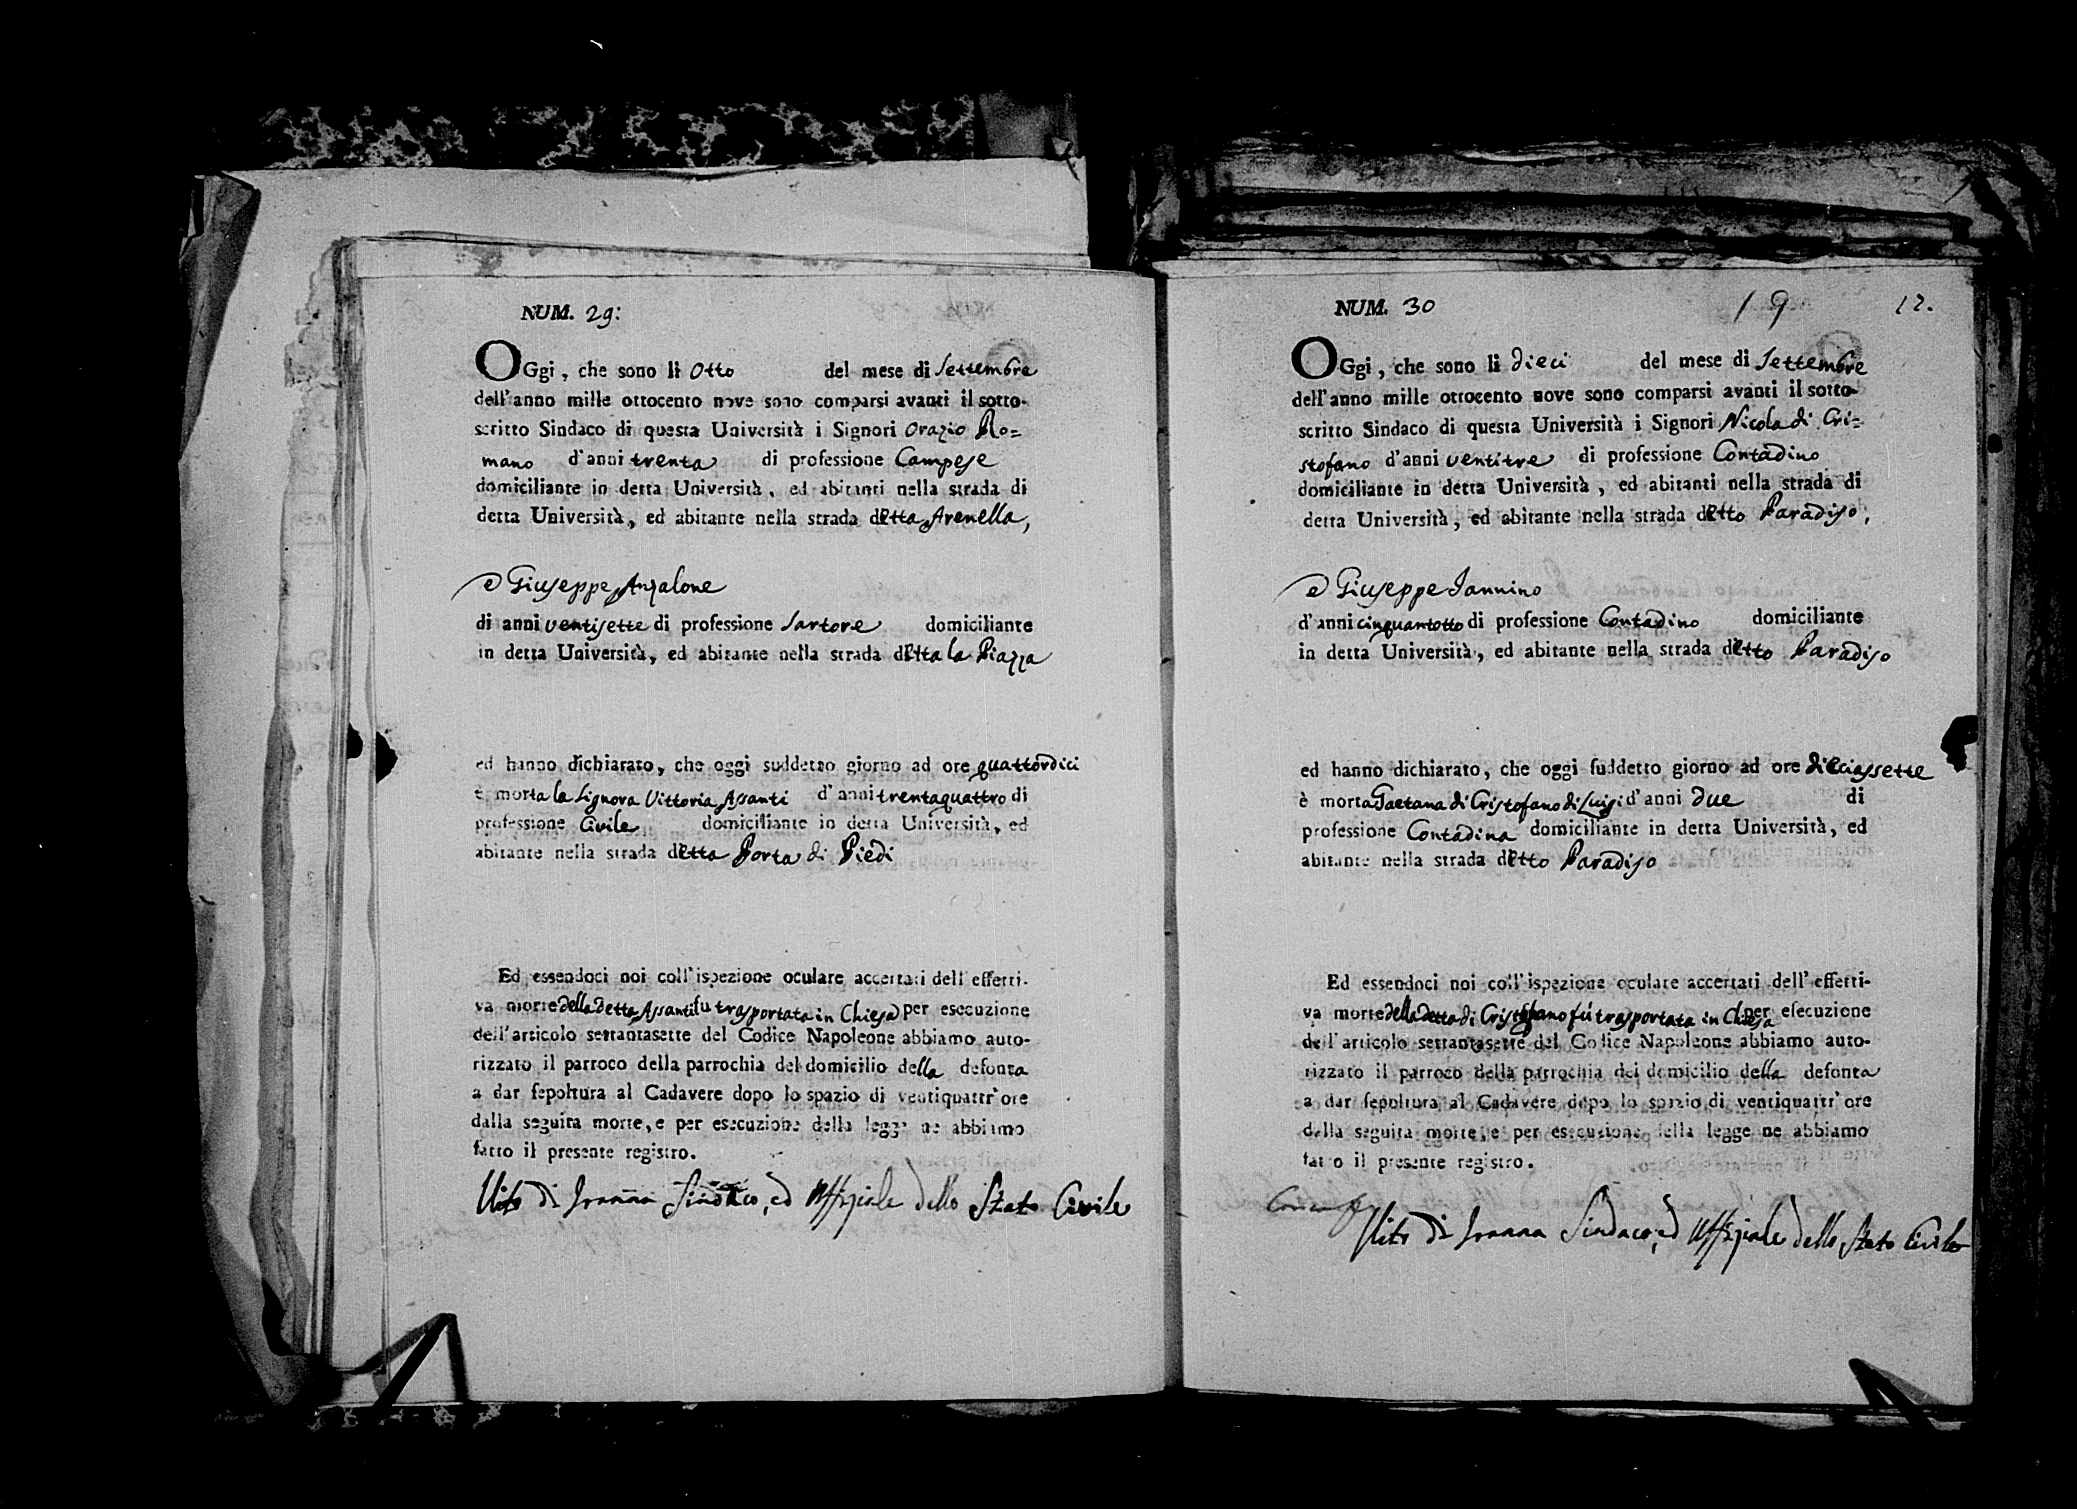 NUM. 29:
OGgi, che sono li Otto del mese di Settembre
dell'anno mille ottocento nove sono comparsi avanti il sotto-
scritto Sindaco di questa Università i Signori Orazio Ro=
mano d'anni trenta di professione Campese
domiciliante in detta Università, ed abitanti nella strada di
detta Università, ed abitante nella strada detta Arenella,
e Giuseppe Anzalone
di anni ventisette di professione Sartore domiciliante
in detta Università, ed abitante nella strada detta la Piazza
ed hanno dichiarato, che oggi suddetto giorno ad ore quattordici
è morta la Signora Vittoria Assanti d'anni trentaquattro di
professione Civile domiciliante in detta Università, ed
abitante nella strada detta Porta di Piedi
Ed essendoci noi coll'ispezione oculare accertati dell effetti-
va morte della detta Assanti fu trasportata in Chiesa per esecuzione
dell'articolo settantasette del Codice Napoleone abbiamo auto-
rizzato il parroco della parrochia del domicilio della defonta
a dar sepoltura al Cadavere dopo lo spazio di ventiquattr'ore
dalla seguita morte, e per esecuzione della legge ne abbiamo
fatto il presente registro.
Vito di Ioanna Sindaco, ed Uffiziale dello Stato Civile
NUM. 30 19 12.
OGgi, che sono li dieci del mese di Settembre
dell'anno mille ottocento nove sono comparsi avanti il sotto-
scritto Sindaco di questa Università i Signori Nicola di Cri=
stofano d'anni ventitre di professione Contadino
domiciliante in detta Università, ed abitanti nella strada di
detta Università, ed abitante nella strada detto Paradiso,
e Giuseppe Iannino
d'anni cinquantotto di professione Contadino domiciliante
in detta Università, ed abitante nella strada detto Paradiso
ed hanno dichiarato, che oggi suddetto giorno ad ore dieciassette
è morta Gaetana di Cristofano di Luigi d'anni due di
professione Contadina domiciliante in detta Università, ed
abitante nella strada detto Paradiso
Ed essendoci noi coll'ispezione oculare accertati dell'effetti-
va morte della detta di Cristofano fù trasportata in Chiesa per esecuzione
dell'articolo settantasette del Codice Napoleone abbiamo auto-
rizzato il parroco della parrochia del domicilio della defonta
a dar sepoltura al Cadavere dopo lo spazio di ventiquattr'ore
dalla seguita morte, e per esecuzione della legge ne abbiamo
fatto il presente registro.
Vito di Ioanna Sindaco, ed Uffiziale dello Stato Civile